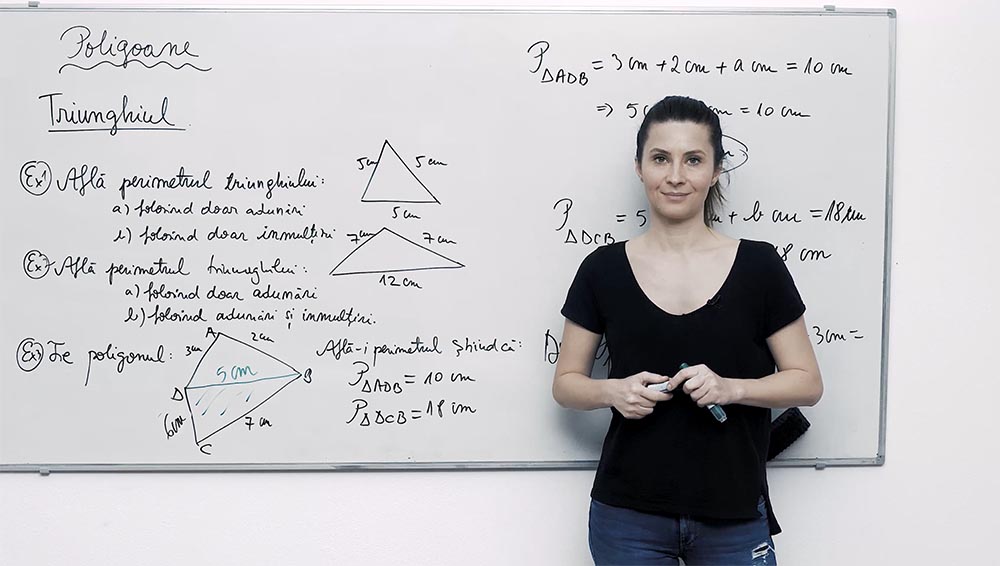 Poligoane
Triunghiul
Ex1 Află perimetrul triunghiului:
a) folosind doar adunări
b) folosind doar înmulțiri
5 cm 5 cm
5 cm
Ex2 Află perimetrul triunghiului:
a) folosind doar adunări
b) folosind adunări și înmulțiri.
7 cm 7 cm
12 cm
Ex3 Fie poligonul:
A
3cm 2cm
5 cm
D B
6cm 7 cm
C
Află-i perimetrul știind că:
PΔADB = 10 cm
PΔDCB = 18 cm
PΔADB = 3 cm + 2 cm + a cm = 10 cm
⇒ 5 cm = 10 cm
PΔDCB = 5 + b cm = 18 cm
8 cm
3 cm =